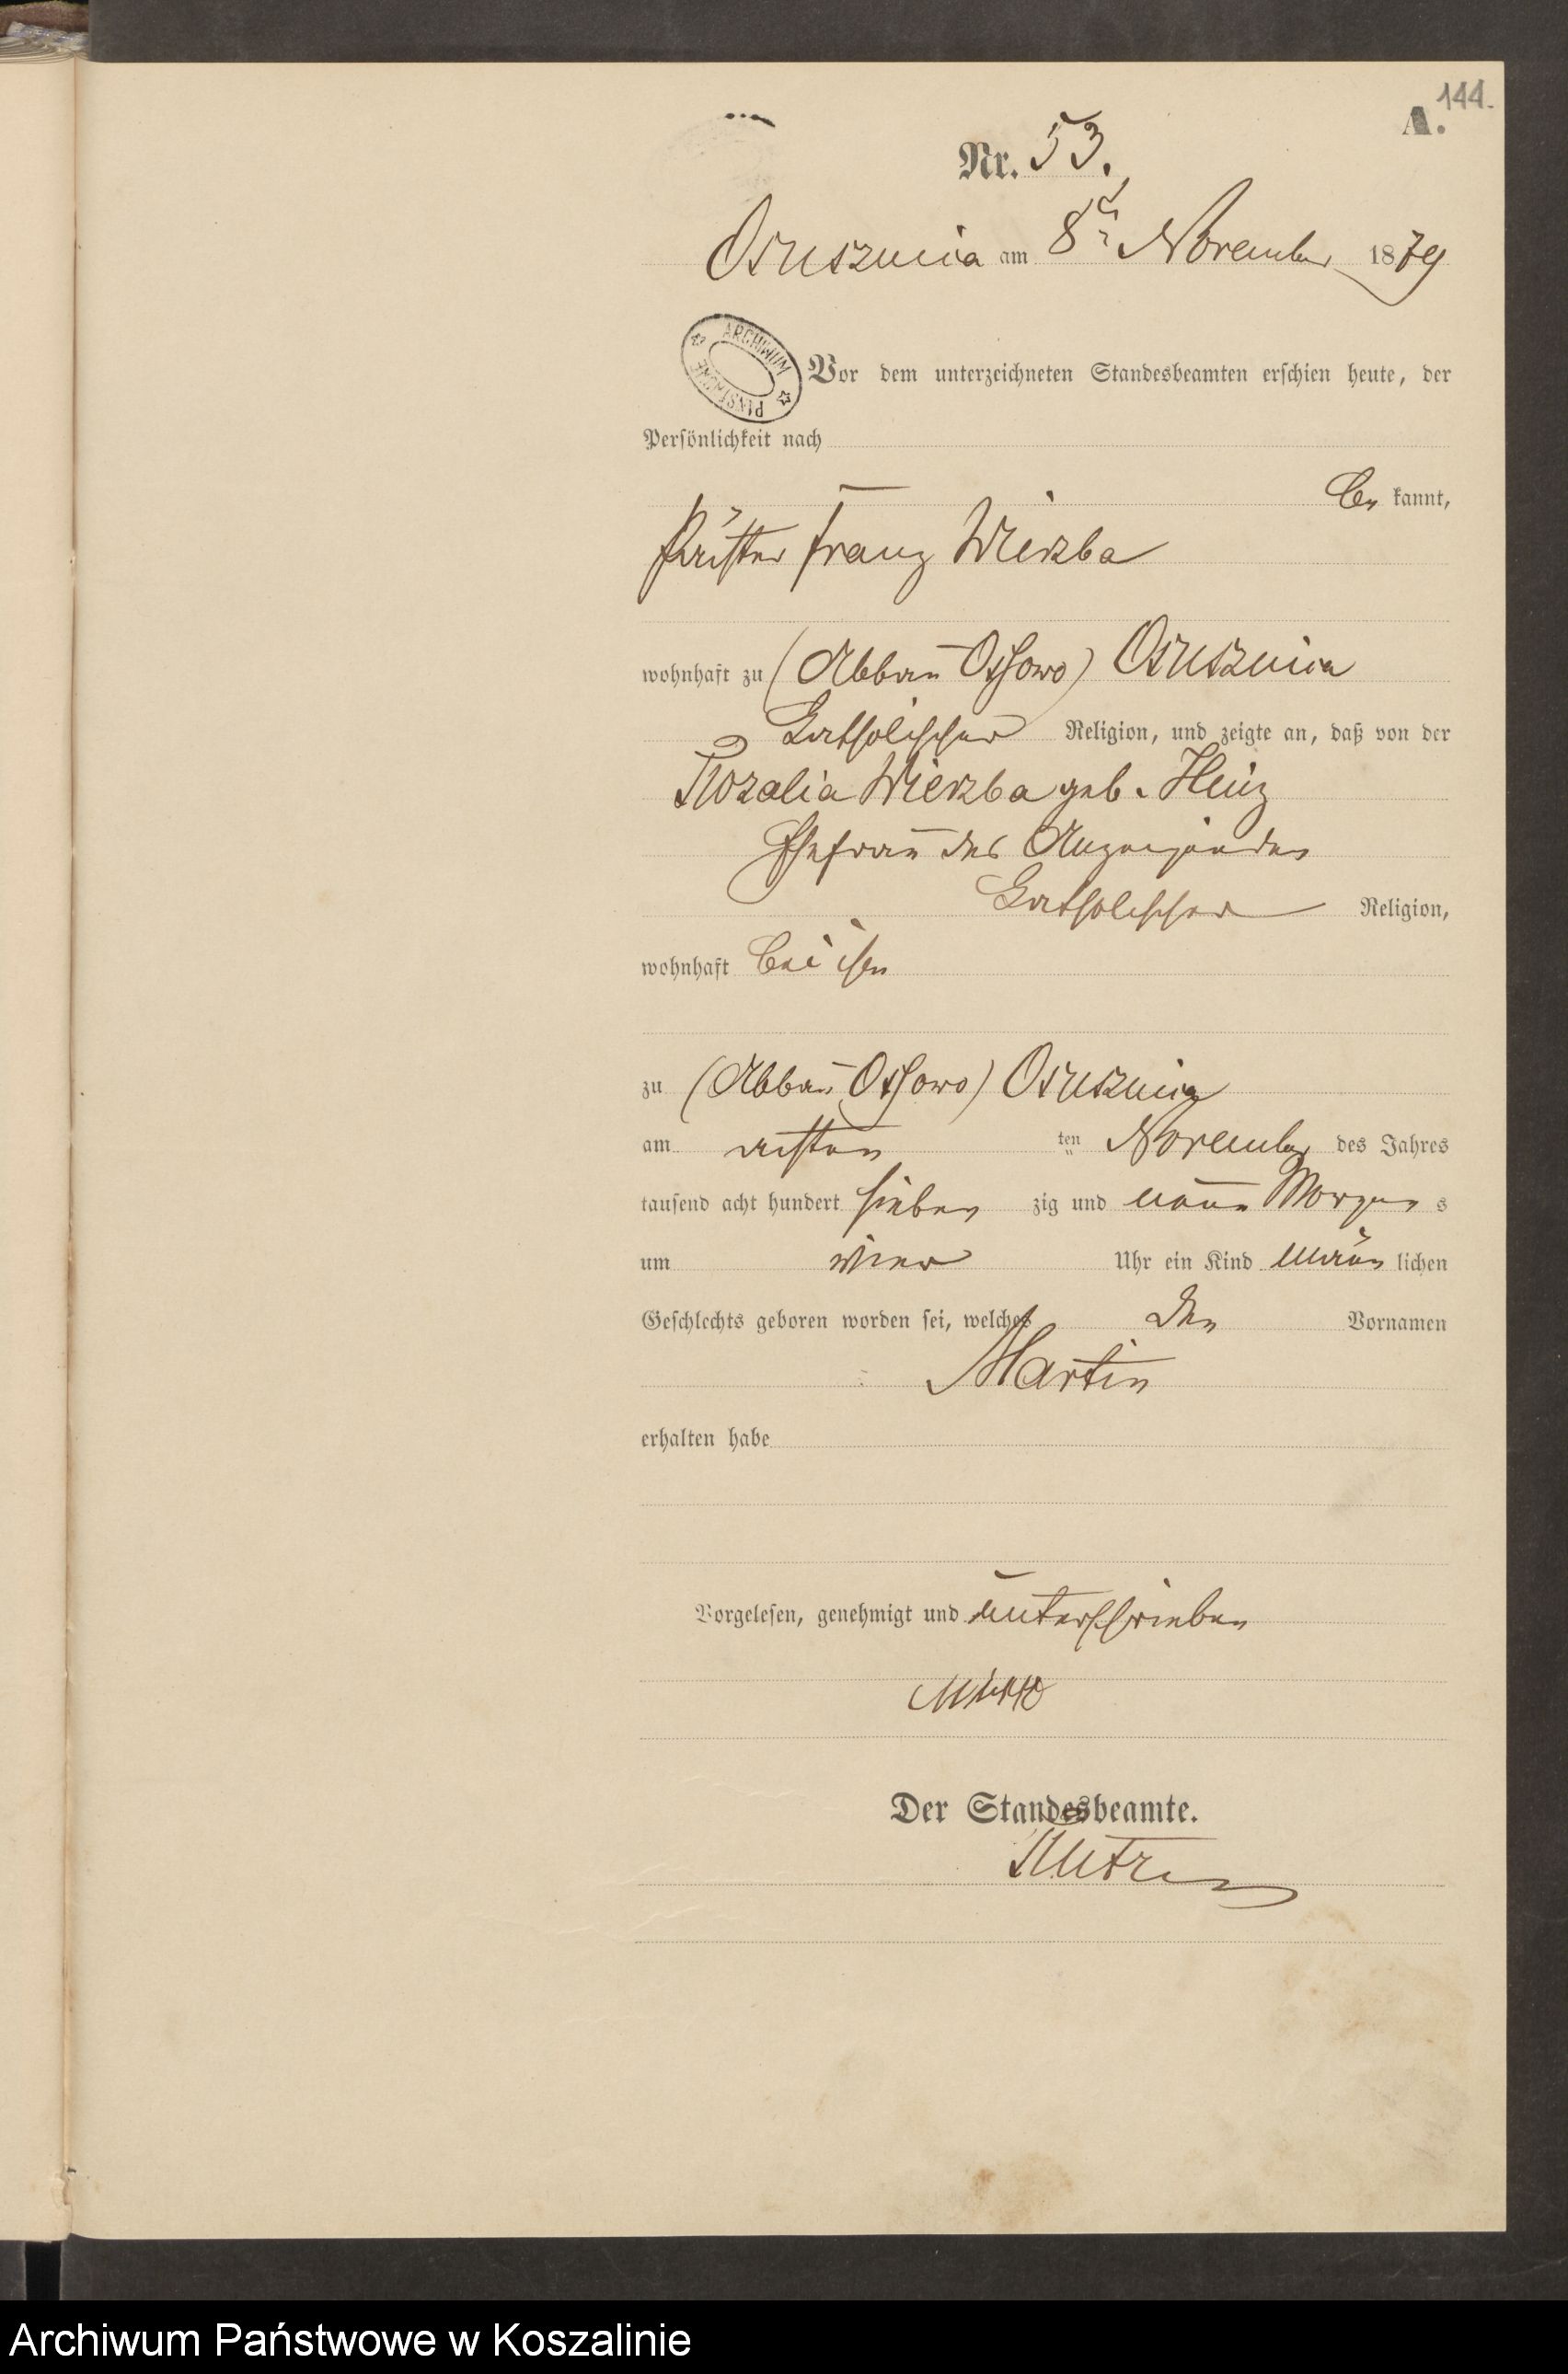 144.
A.
Nr. 53.
Osusznica am 8ten November 1879
ARCHIWUM PAŃSTWOWE
Vor dem unterzeichneten Standesbeamten erschien heute, der
Persönlichkeit nach
be kannt,
Franz Wierzba
wohnhaft zu (Abbau Ossowo) Osusznica
katholischer Religion, und zeigte an, daß von der
Rozalia Wierzba geb. Heinz
Ehefrau des Anzeigenden
katholischer Religion,
wohnhaft bei ihm
zu (Abbau Ossowo) Osusznica
am ersten ten November des Jahres
tausend acht hundert sieben zig und neun Morgen s
um vier Uhr ein Kind männ lichen
Geschlechts geboren worden sei, welches den Vornamen
Martin
erhalten habe
Vorgelesen, genehmigt und unterschrieben
Der Standesbeamte.
Archiwum Państwowe w Koszalinie